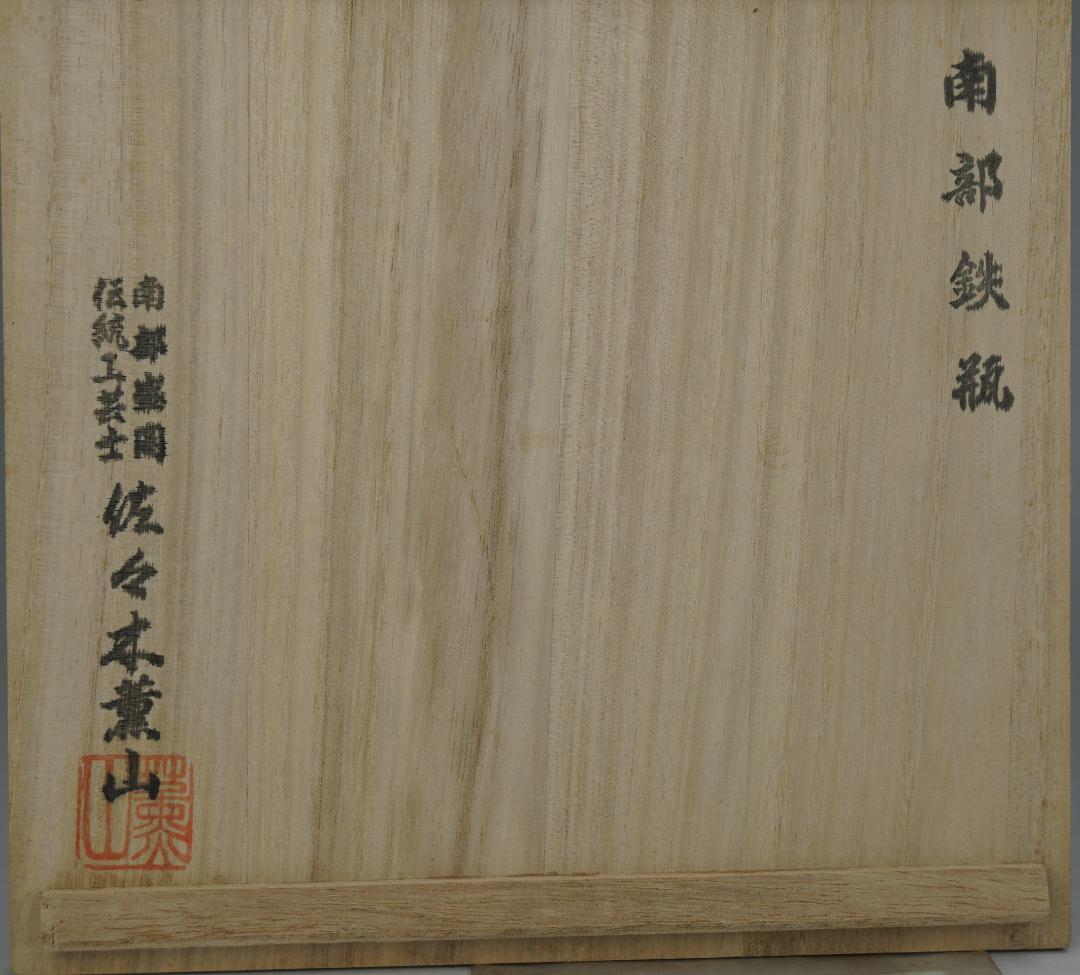 南部鉄瓶
南部盛岡
伝統工芸士
佐々木薫山
薫山